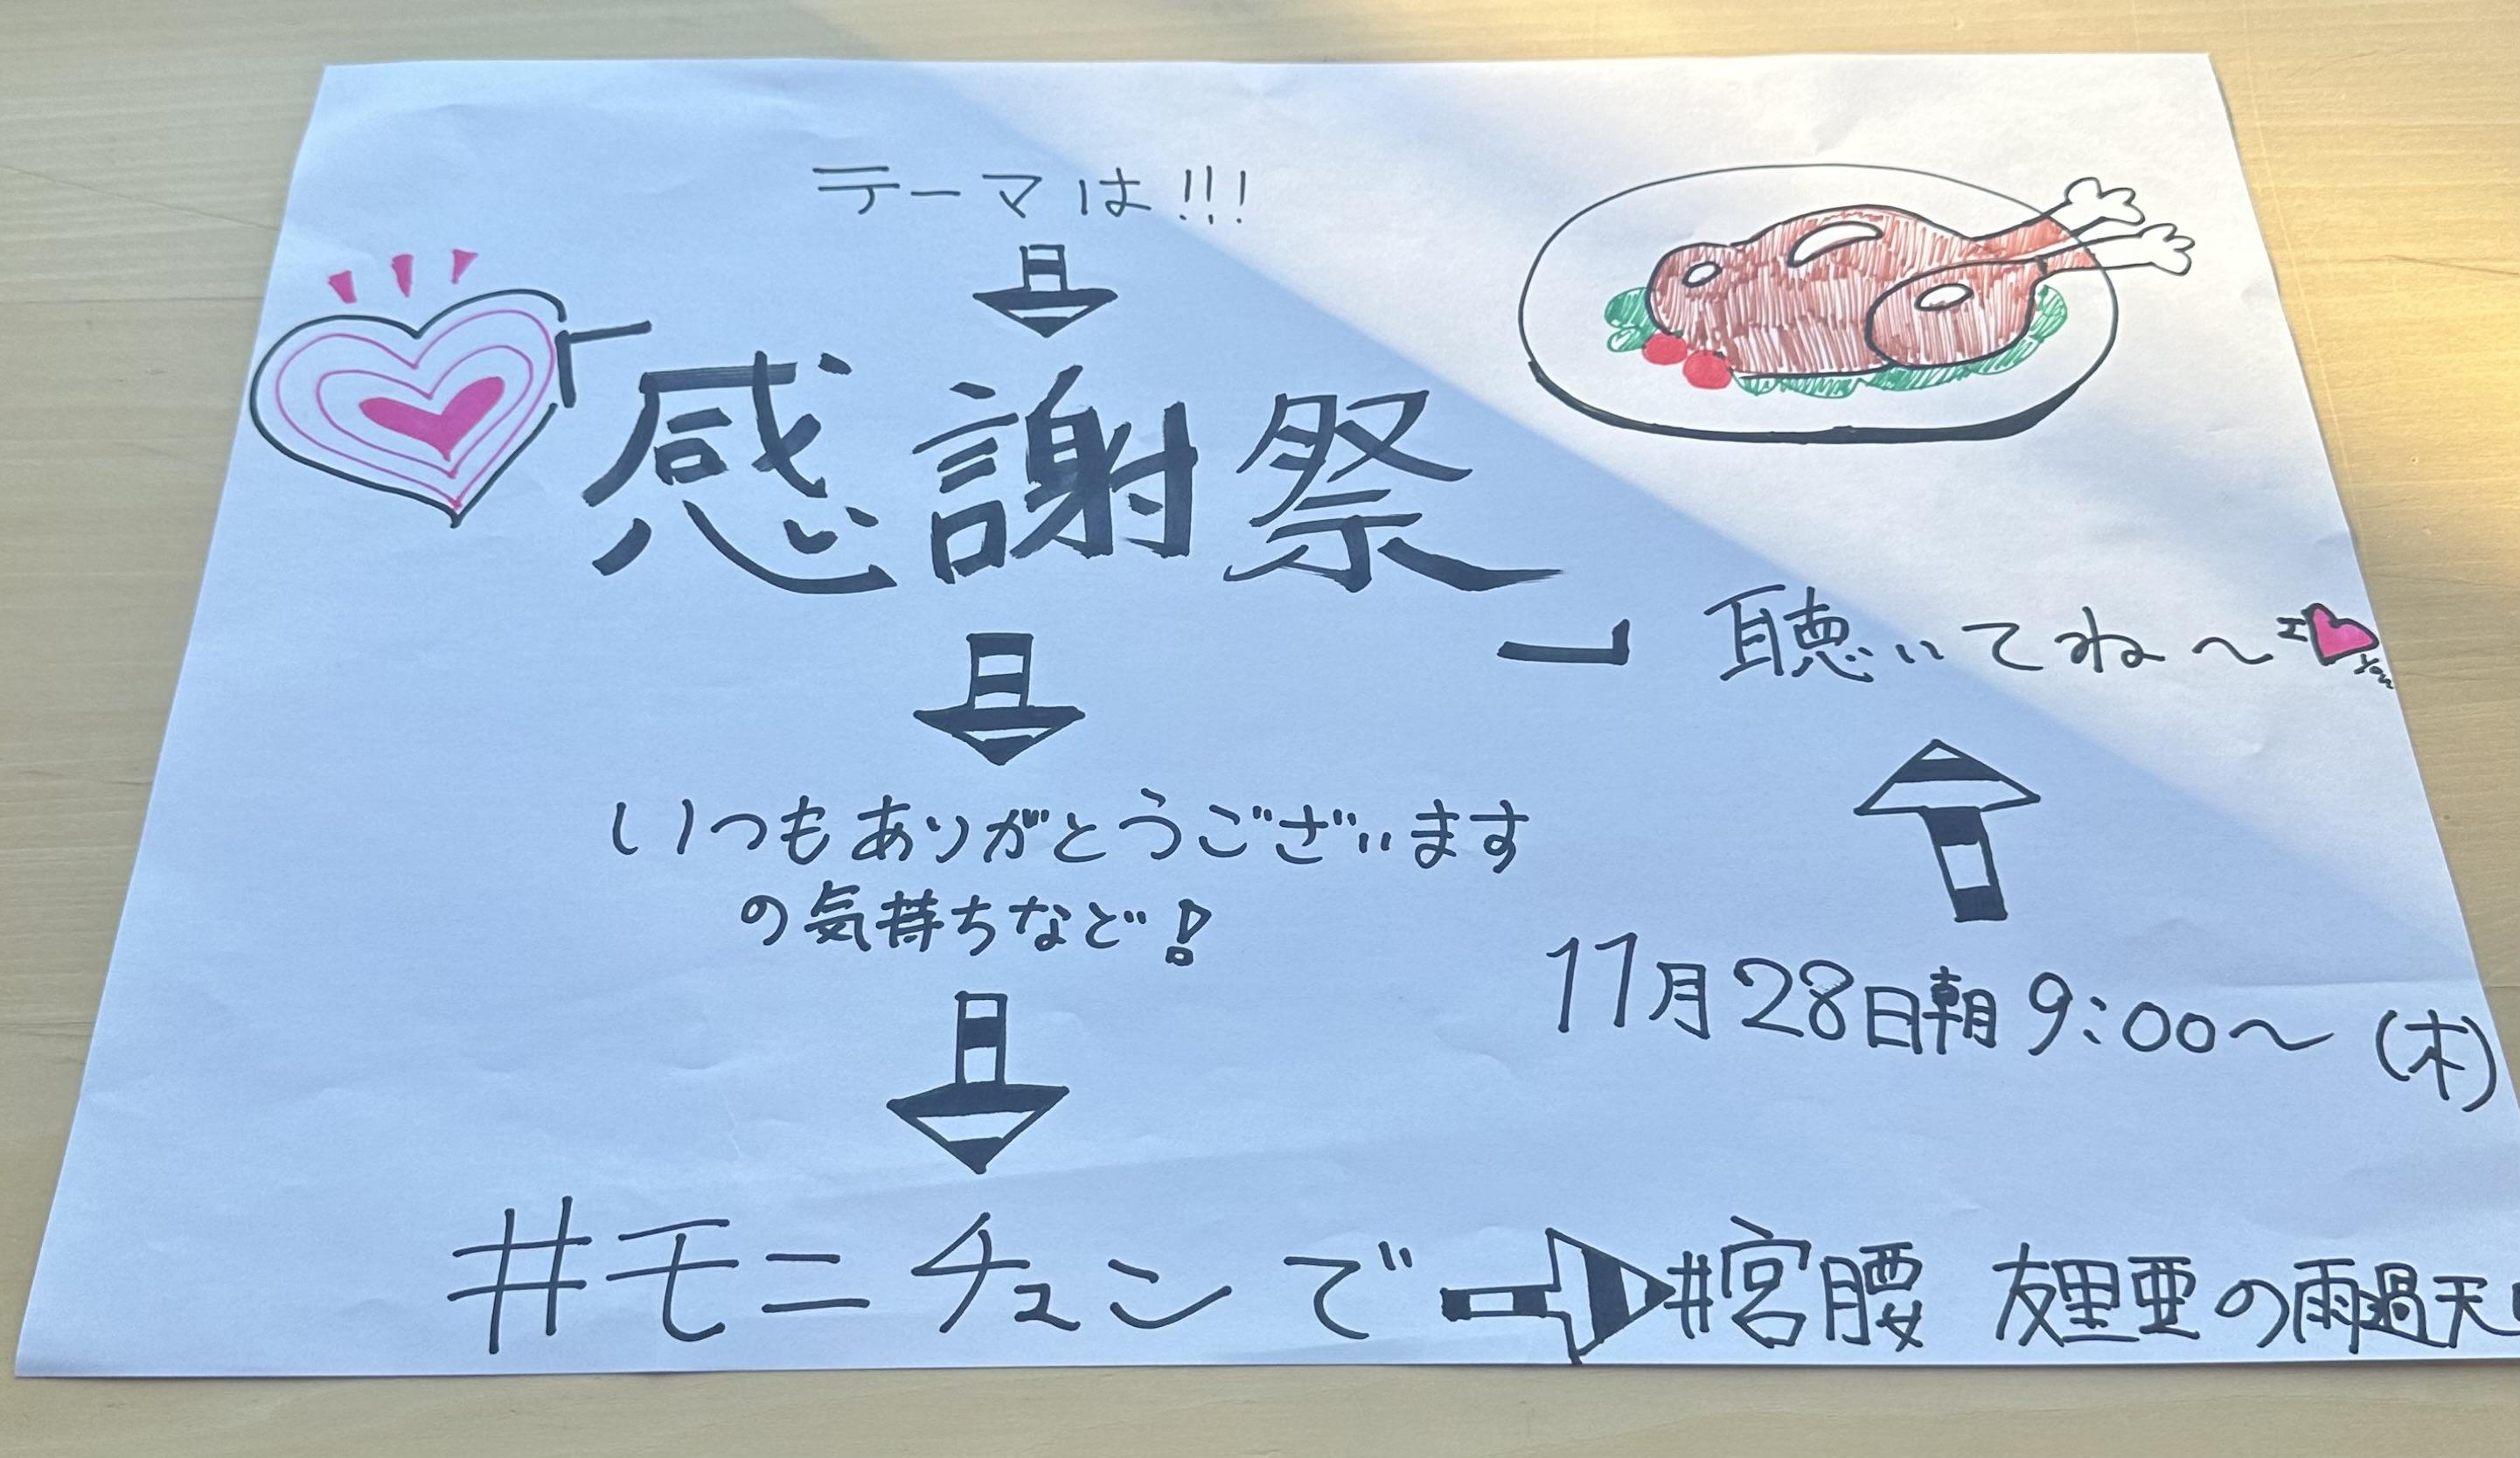 テーマは!!!
「感謝祭」
いつもありがとうございます
の気持ちなど!
#モニチュンで
聴いてね〜
I you
11月28日朝9:00〜(木)
#宮腰 友里亜の雨過天